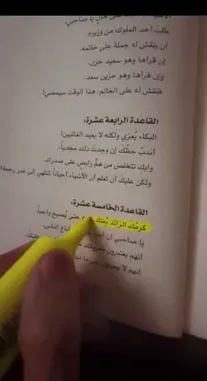 طلب أحد الملوك من وزيره
أن ينقش له جملة على خاتمه،
إن قرأها وهو سعيد حزن،
وإن قرأها وهو حزين سعد.
فنقش له على الخاتم: هذا الوقت سيمضي!
القاعدة الرابعة عشرة:
البكاء يُعزي ولكنه لا يعيد الغائبين!
اندب حظك إن وجدت ذلك مجدياً،
وابكِ لتتخلص من همٍّ رابض على صدرك،
ولكن عليك أن تعلم أن الأشياء أحياناً تنتهي إلى غير رجعة!
القاعدة الخامسة عشرة:
كرمك الزائد يُعتاد حتى يُصبح واجباً.
يا صاحبي إن
الناس
أنهم يعتبرون
إنهم لا